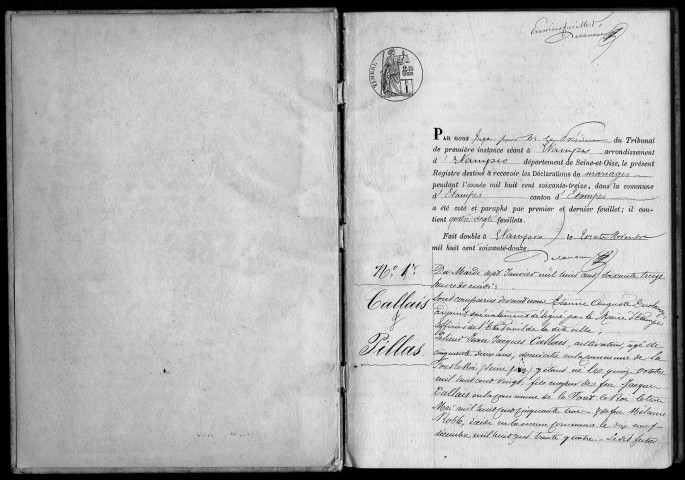 Premier feuillet
TIMBRE
PAR nous Juge pour M. le Président du Tribunal
de première instance séant à Etampes arrondissement
d'Etampes département de Seine-et-Oise, le présent
Registre destiné à recevoir les Déclarations de mariages
pendant l'année mil huit cent soixante-treize, dans la commune
d'Etampes canton d'Etampes
a été coté et paraphé par premier et dernier feuillet; il con-
tient quatre vingts feuillets.
Fait double à Etampes le trente Novembre
mil huit cent soixante-douze.
No 1er
Callais
&
Pillas
Du Mardi sept Janvier mil huit cent soixante treize
heure de midi:
Sont comparus devant nous Etienne Auguste
adjoint spécialement délégué par le Maire d'Etampes
officier de l'Etat civil de la dite ville,
Jean Jacques Callais, cultivateur, âgé de
cinquante deux ans, domicilié en la commune de La
Forêt le Roi (Seine et Oise) y étant né le quinze Octobre
mil huit cent vingt, fils majeur de feu Jacques
Callais en la commune de la Forêt le Roi le
Mai mil huit cent cinquante et de feue Mélanie
décédée en la même commune le dix neuf
décembre mil huit cent trente quatre. Le dit futur